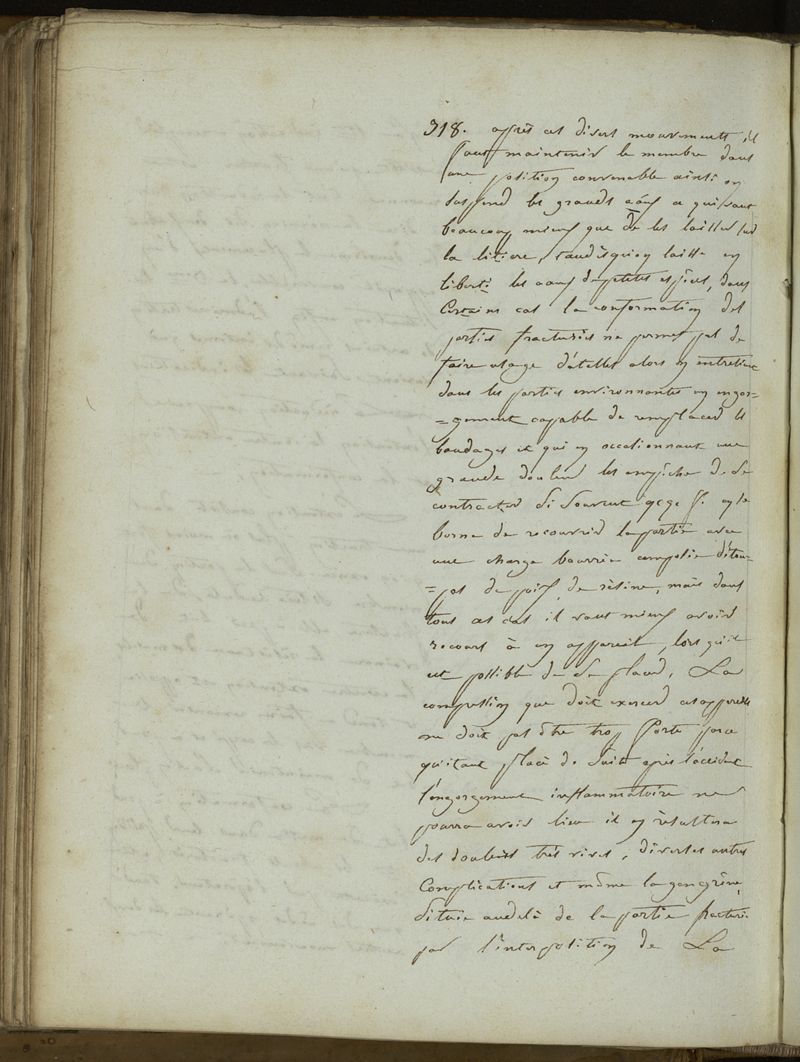 318. après ces divers mouvements, il
faut maintenir le membre dans
une position convenable ainsi on
suspend les grands a qui vaut
beaucoup mieux que de les laisser sur
la litiere, tandisquion laisse en
liberté les de petites espèces, dans
Certains cas la conformation des
parties fracturées ne permet pas de
faire usage d'attelles alors on entretient
dans les parties environnantes un engor=
=gement capable de remplacer les
bandages et qui en occasionnant une
grande douleur les empêche de se
contracter Si Souvent on se
borne de recouvrir la partie avec
une charge d'étou=
=pes de poix, de résine, mais dans
tous ces cas il vaut mieux avoir
recours à un appareil, lors qu'il
est possible de se placer, La
compression que doit exercer cet appareil
ne doit pas être trop forte parce
qu'étant placé de Suite après l'accident
l'engorgement inflammatoire ne
pourra avoir lieu il en résultera
des douleurs très vives, diverses autres
Complications et même la gangrène,
Située audelà de la partie fracturée
par l'interposition de La